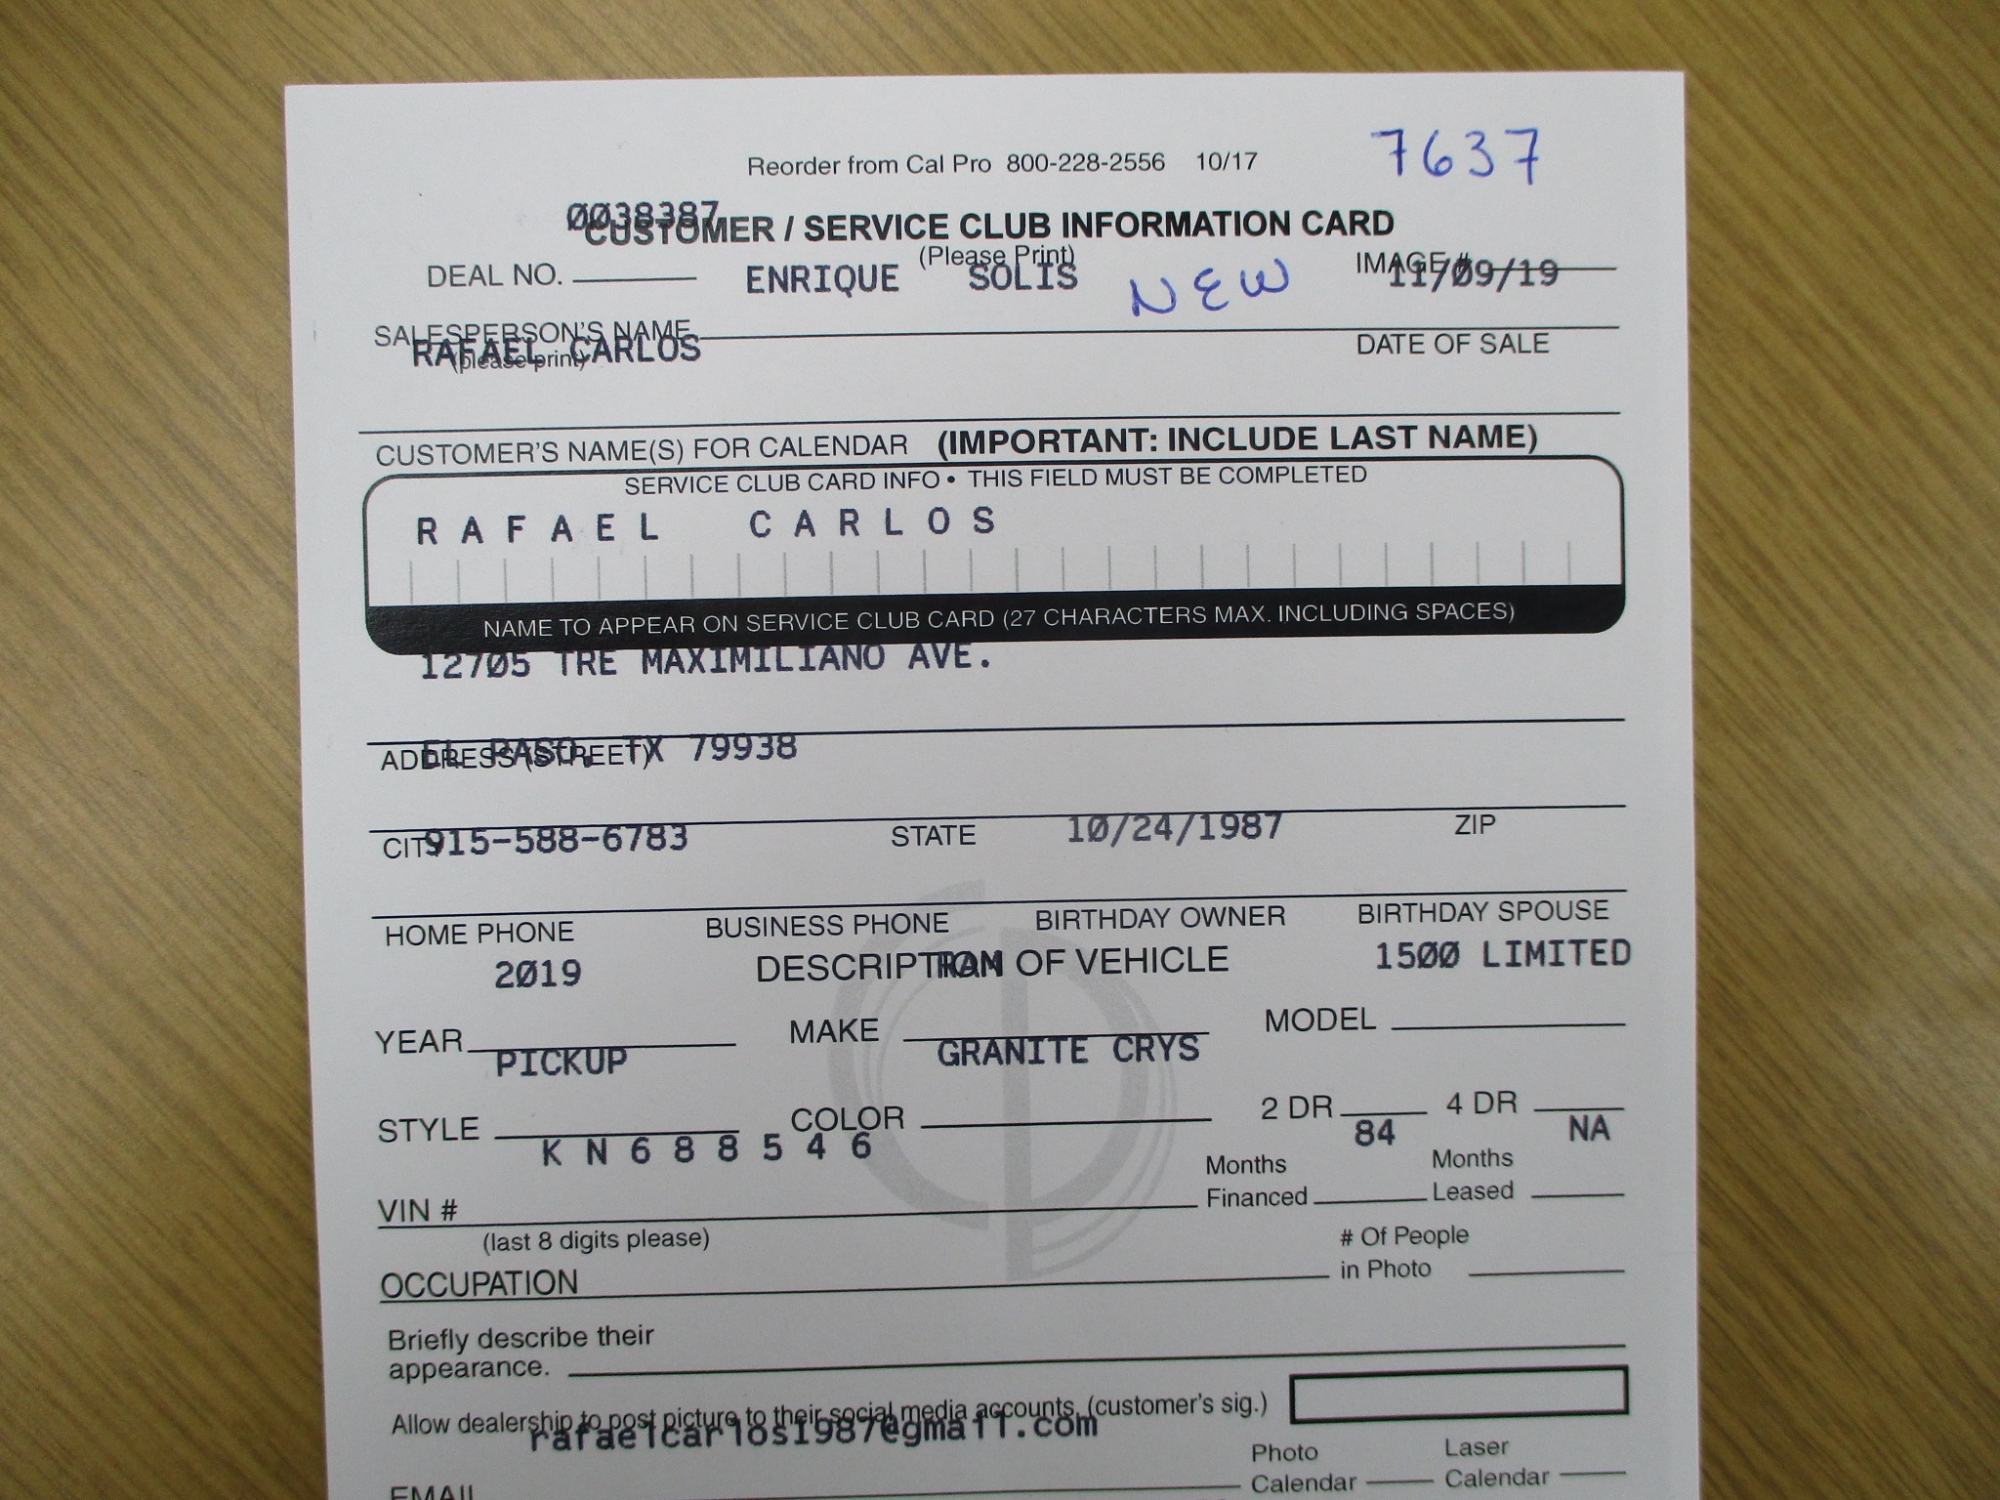 Reorder from Cal Pro 800-228-2556 10/17 7637
0038387
CUSTOMER / SERVICE CLUB INFORMATION CARD
(Please Print)
DEAL NO. ENRIQUE SOLIS NEW IMAGE # 11/09/19
SALESPERSON'S NAME DATE OF SALE
RAFAEL CARLOS
(please print)
CUSTOMER'S NAME(S) FOR CALENDAR (IMPORTANT: INCLUDE LAST NAME)
SERVICE CLUB CARD INFO • THIS FIELD MUST BE COMPLETED
RAFAEL CARLOS
NAME TO APPEAR ON SERVICE CLUB CARD (27 CHARACTERS MAX. INCLUDING SPACES)
12705 TRE MAXIMILIANO AVE.
EL PASO, TX 79938
ADDRESS (STREET)
915-588-6783 10/24/1987
CITY STATE ZIP
HOME PHONE BUSINESS PHONE BIRTHDAY OWNER BIRTHDAY SPOUSE
2019 RAM 1500 LIMITED
DESCRIPTION OF VEHICLE
YEAR MAKE MODEL
PICKUP GRANITE CRYS
STYLE COLOR 2 DR 4 DR
KN688546 84 NA
VIN # Months Financed Months Leased
(last 8 digits please)
OCCUPATION # Of People in Photo
Briefly describe their
appearance.
Allow dealership to post picture to their social media accounts. (customer's sig.)
rafaelcarlos1987@gmail.com
EMAIL Photo Calendar Laser Calendar